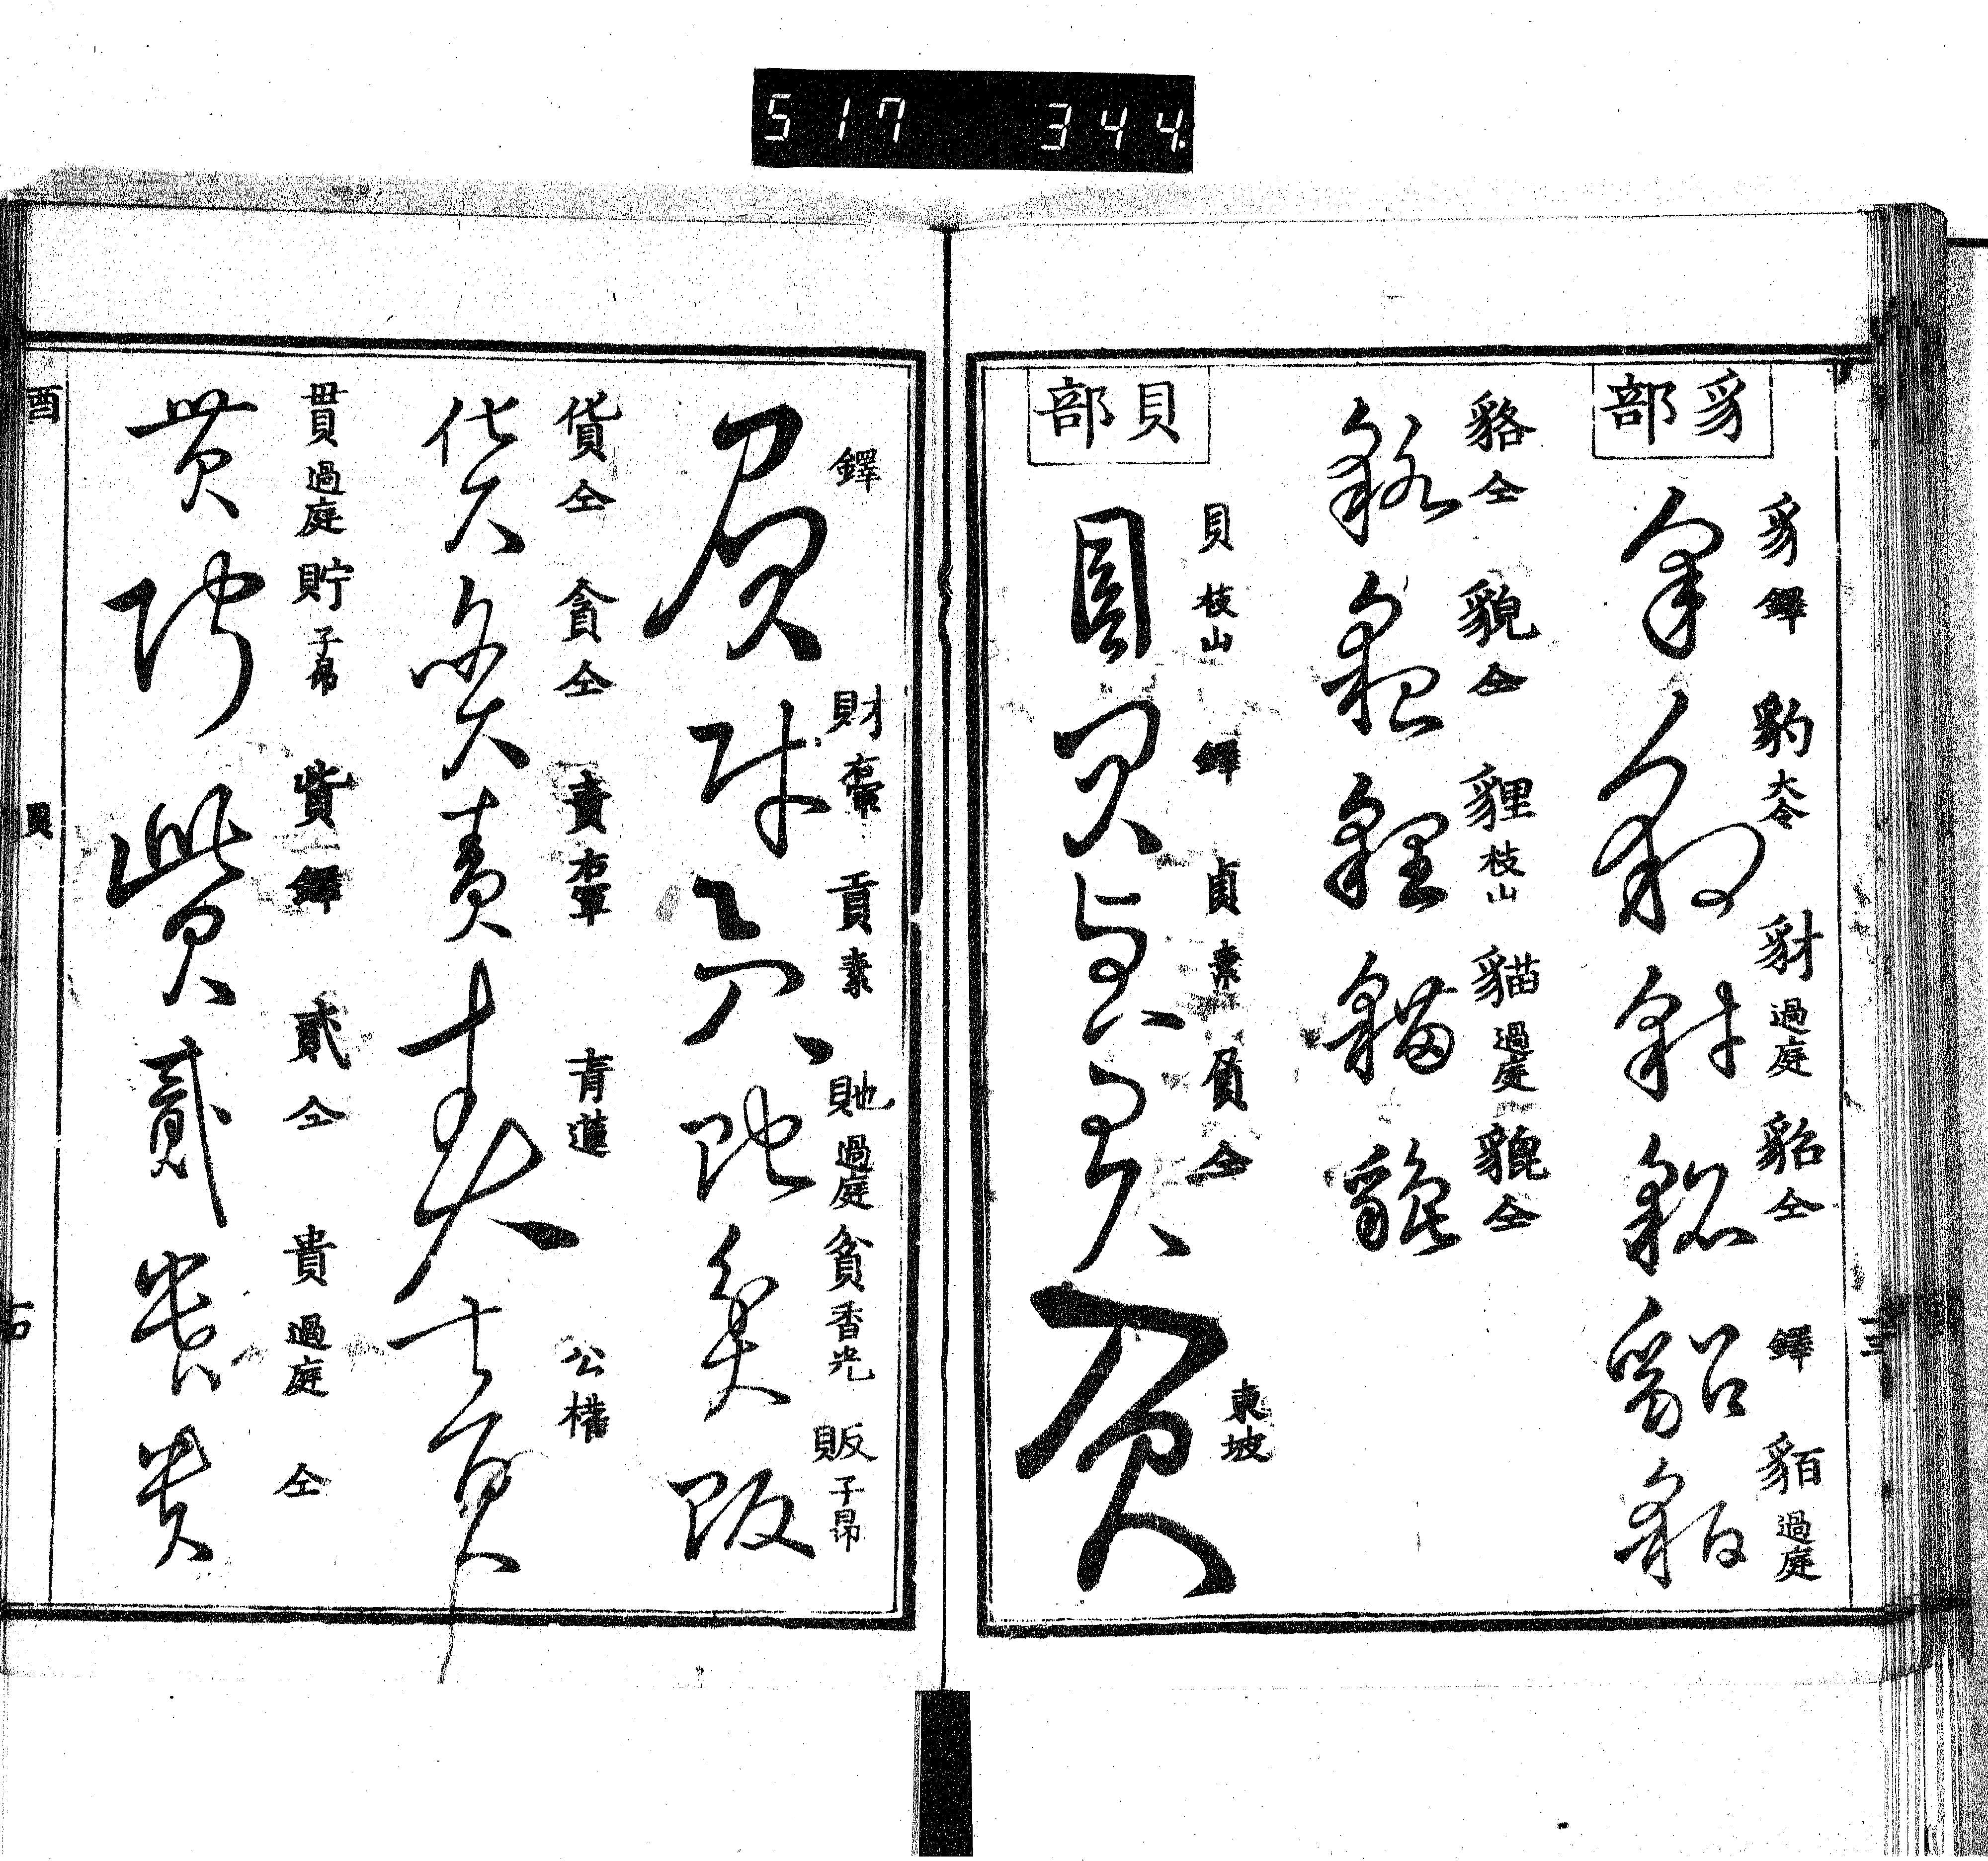 517 344
豸部
豸 鐸 豹 大令 豺 過庭 貂 仝 鐸 貊 過庭
貉 仝 貌 仝 貍 枝山 貓 過庭 貔 仝
貝部
貝 枝山 鐸 貞 素 負 仝 東坡
鐸 財 貢 素 貤 過庭 貧 香光 販 子昂
貨 仝 貪 仝 責 右軍 青蓮 公權
貫 過庭 貯 子昂 貲 鐸 貳 仝 貴 過庭 仝
酉
貝